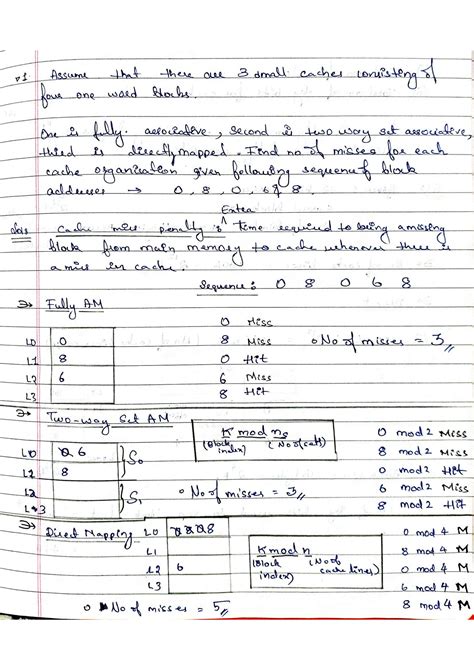 Q1. Assume that there are 3 small caches consisting of
four one word blocks.
One is fully associative, second is two way set associative,
third is directly mapped. Find no of misses for each
cache organization given following sequence of block
addresses → 0, 8, 0, 6, 8.
Extra
Cache miss penalty is ^ time required to bring a missing
block from main memory to cache whenever there is
a miss in cache.
Sequence: 0 8 0 6 8
⇒ Fully AM
0 Miss
L0 0 8 Miss No of misses = 3
L1 8 0 Hit
L2 6 6 Miss
L3 8 Hit
⇒ Two-way Set AM
K mod ns 0 mod 2 Miss
(Block index) (No of sets)
L0 0 6 S0 8 mod 2 Miss
8 0 mod 2 Hit
L2 S1 No of misses = 3 6 mod 2 Miss
L3 8 mod 2 Hit
⇒ Direct Mapping L0 0 8 0 8 0 mod 4 M
L1 K mod n 8 mod 4 M
L2 6 (Block index) (No of cache lines) 0 mod 4 M
L3 6 mod 4 M
No of misses = 5 8 mod 4 M